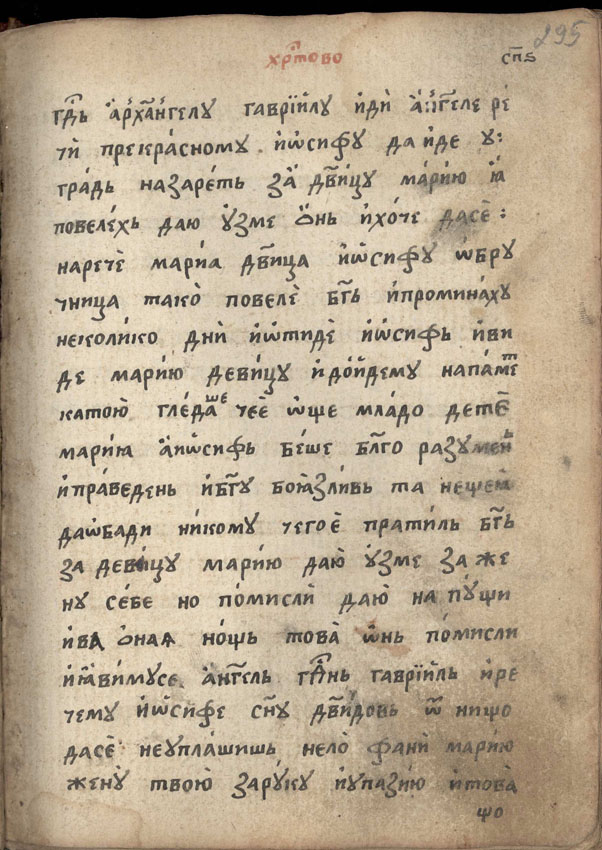 хрⷭ҇тово спⷥ҇ѕ 295
гдⷭ҇ь а҆рха́нгелу гаврїи́лу иди̂ а҆нг҃еле ре
чи̂ прекра́сному и҆ѡ҆сифу да иде у҆:
градь назаретъ за̀ дв҃и́цу ма́рию ꙗ҆
повеле́хь даю у҆зме ѻ҆нь ихо́че дасѐ:
наречѐ мариꙗ дв҃ица и҆ѡ҆сифу ѡ҆бру
чница тако̀ повелѐ бг҃ь и҆проминꙋ́хꙋ
неколи́ко дни̂ и҆ѡ҆тидѐ и҆ѡ҆сифь и҆ви
де марию деви́цу и҆дои̂демꙋ напа́метⷮ
катою̀ гле́даше чеѐ ѡ҆ще мла́до дете̂
мари́ꙗ а҆иѡ҆сифь бе́ше бл҃го разуменⸯ
и҆пра́ведень и҆бг҃у боꙗ҆зли́вь та нещеѝ
даѡ҆бади ни́кому чегоѐ пра́тиль бг҃ь
за деви́цу марию даю̀ у҆зме за же
ну се́бе но по́мисли̂ даю̀ напу́щи
и҆вꙙ ѻ҆наѧ но́щь това̀ ѡ҆нь по́мисли
и҆ꙗ҆ви́мусе. а҆нг҃ель гдⷭ҇нь гаврїи̂ль и҆ре
чему и҆ѡ҆сифе сн҃у дв҃и́довь ѿ ни́що
дасѐ неупла́шишь нело̀ фани̂ мари́ю
жену̀ твою̀ зару́ку и҆упази́ю и҆това̀
що